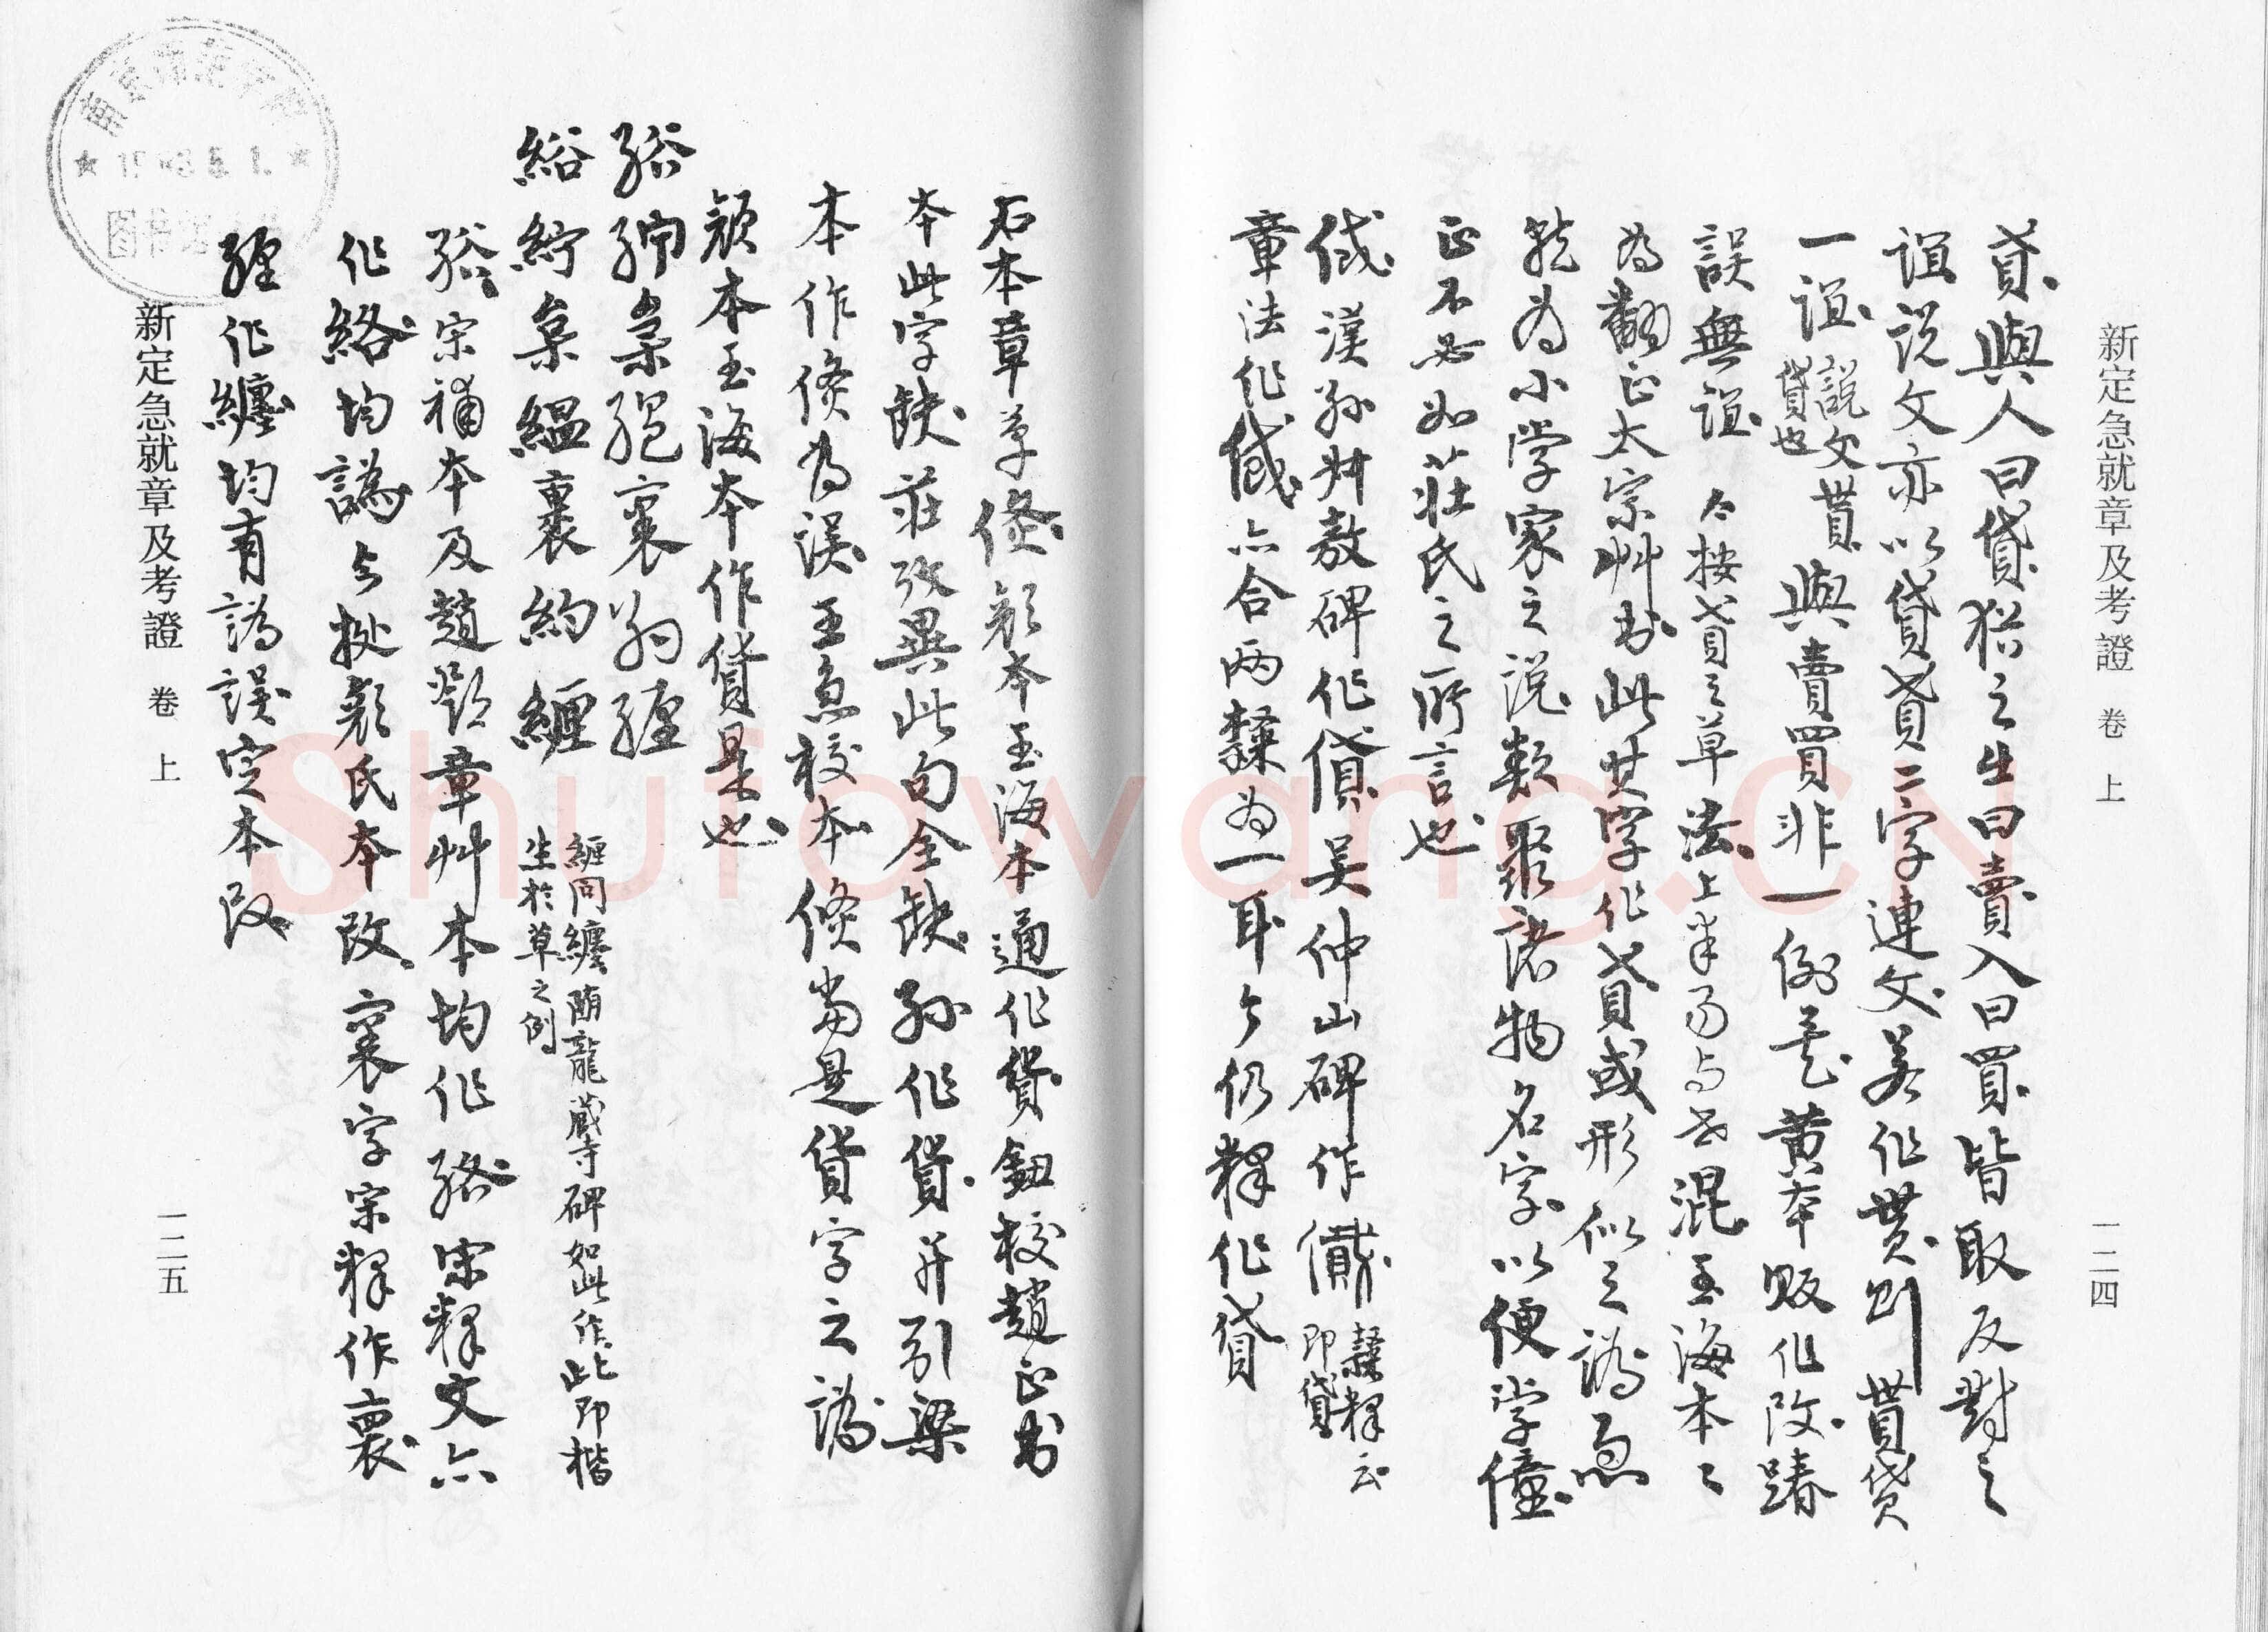 新定急就章及考證 卷上 一二四
貣與人曰貸猶之出曰賣入曰買皆取反對之
誼說文亦以貸貣二字連文若作貰則貰貸
一誼說文貰貸也與賣買非一例是黃本販作改踳
誤無誼 今按貣之草法上半易与世混玉海本之
為翻正太宗艸書此其字作貸或形似之譌急
就為小學家之說類聚諸物名字以便學僮
正不必如莊氏之所言也
漢孫叔敖碑作貸吳仲山碑作 隸釋云即貸
章法作 亦合兩隸為一耳今仍釋作貸
石本章草 顏本玉海本通作貸鈕校趙正書
本此字缺莊攷異此句全缺孫作貸并引梁
本作倐為誤王急校本倐當是貸字之譌
顏本玉海本作貸是也
綌紵枲縕裹約纏
綌紵枲縕裹約纏 纏同纏隋龍藏寺碑如此作此即楷生於草之例
綌宋補本及趙鄧章艸本均作絡宋釋文亦
作絡均譌今據顏氏本改裹字宋釋作裏
纏作纏均有譌誤定本改
新定急就章及考證 卷上 一二五
Shufawang.CN